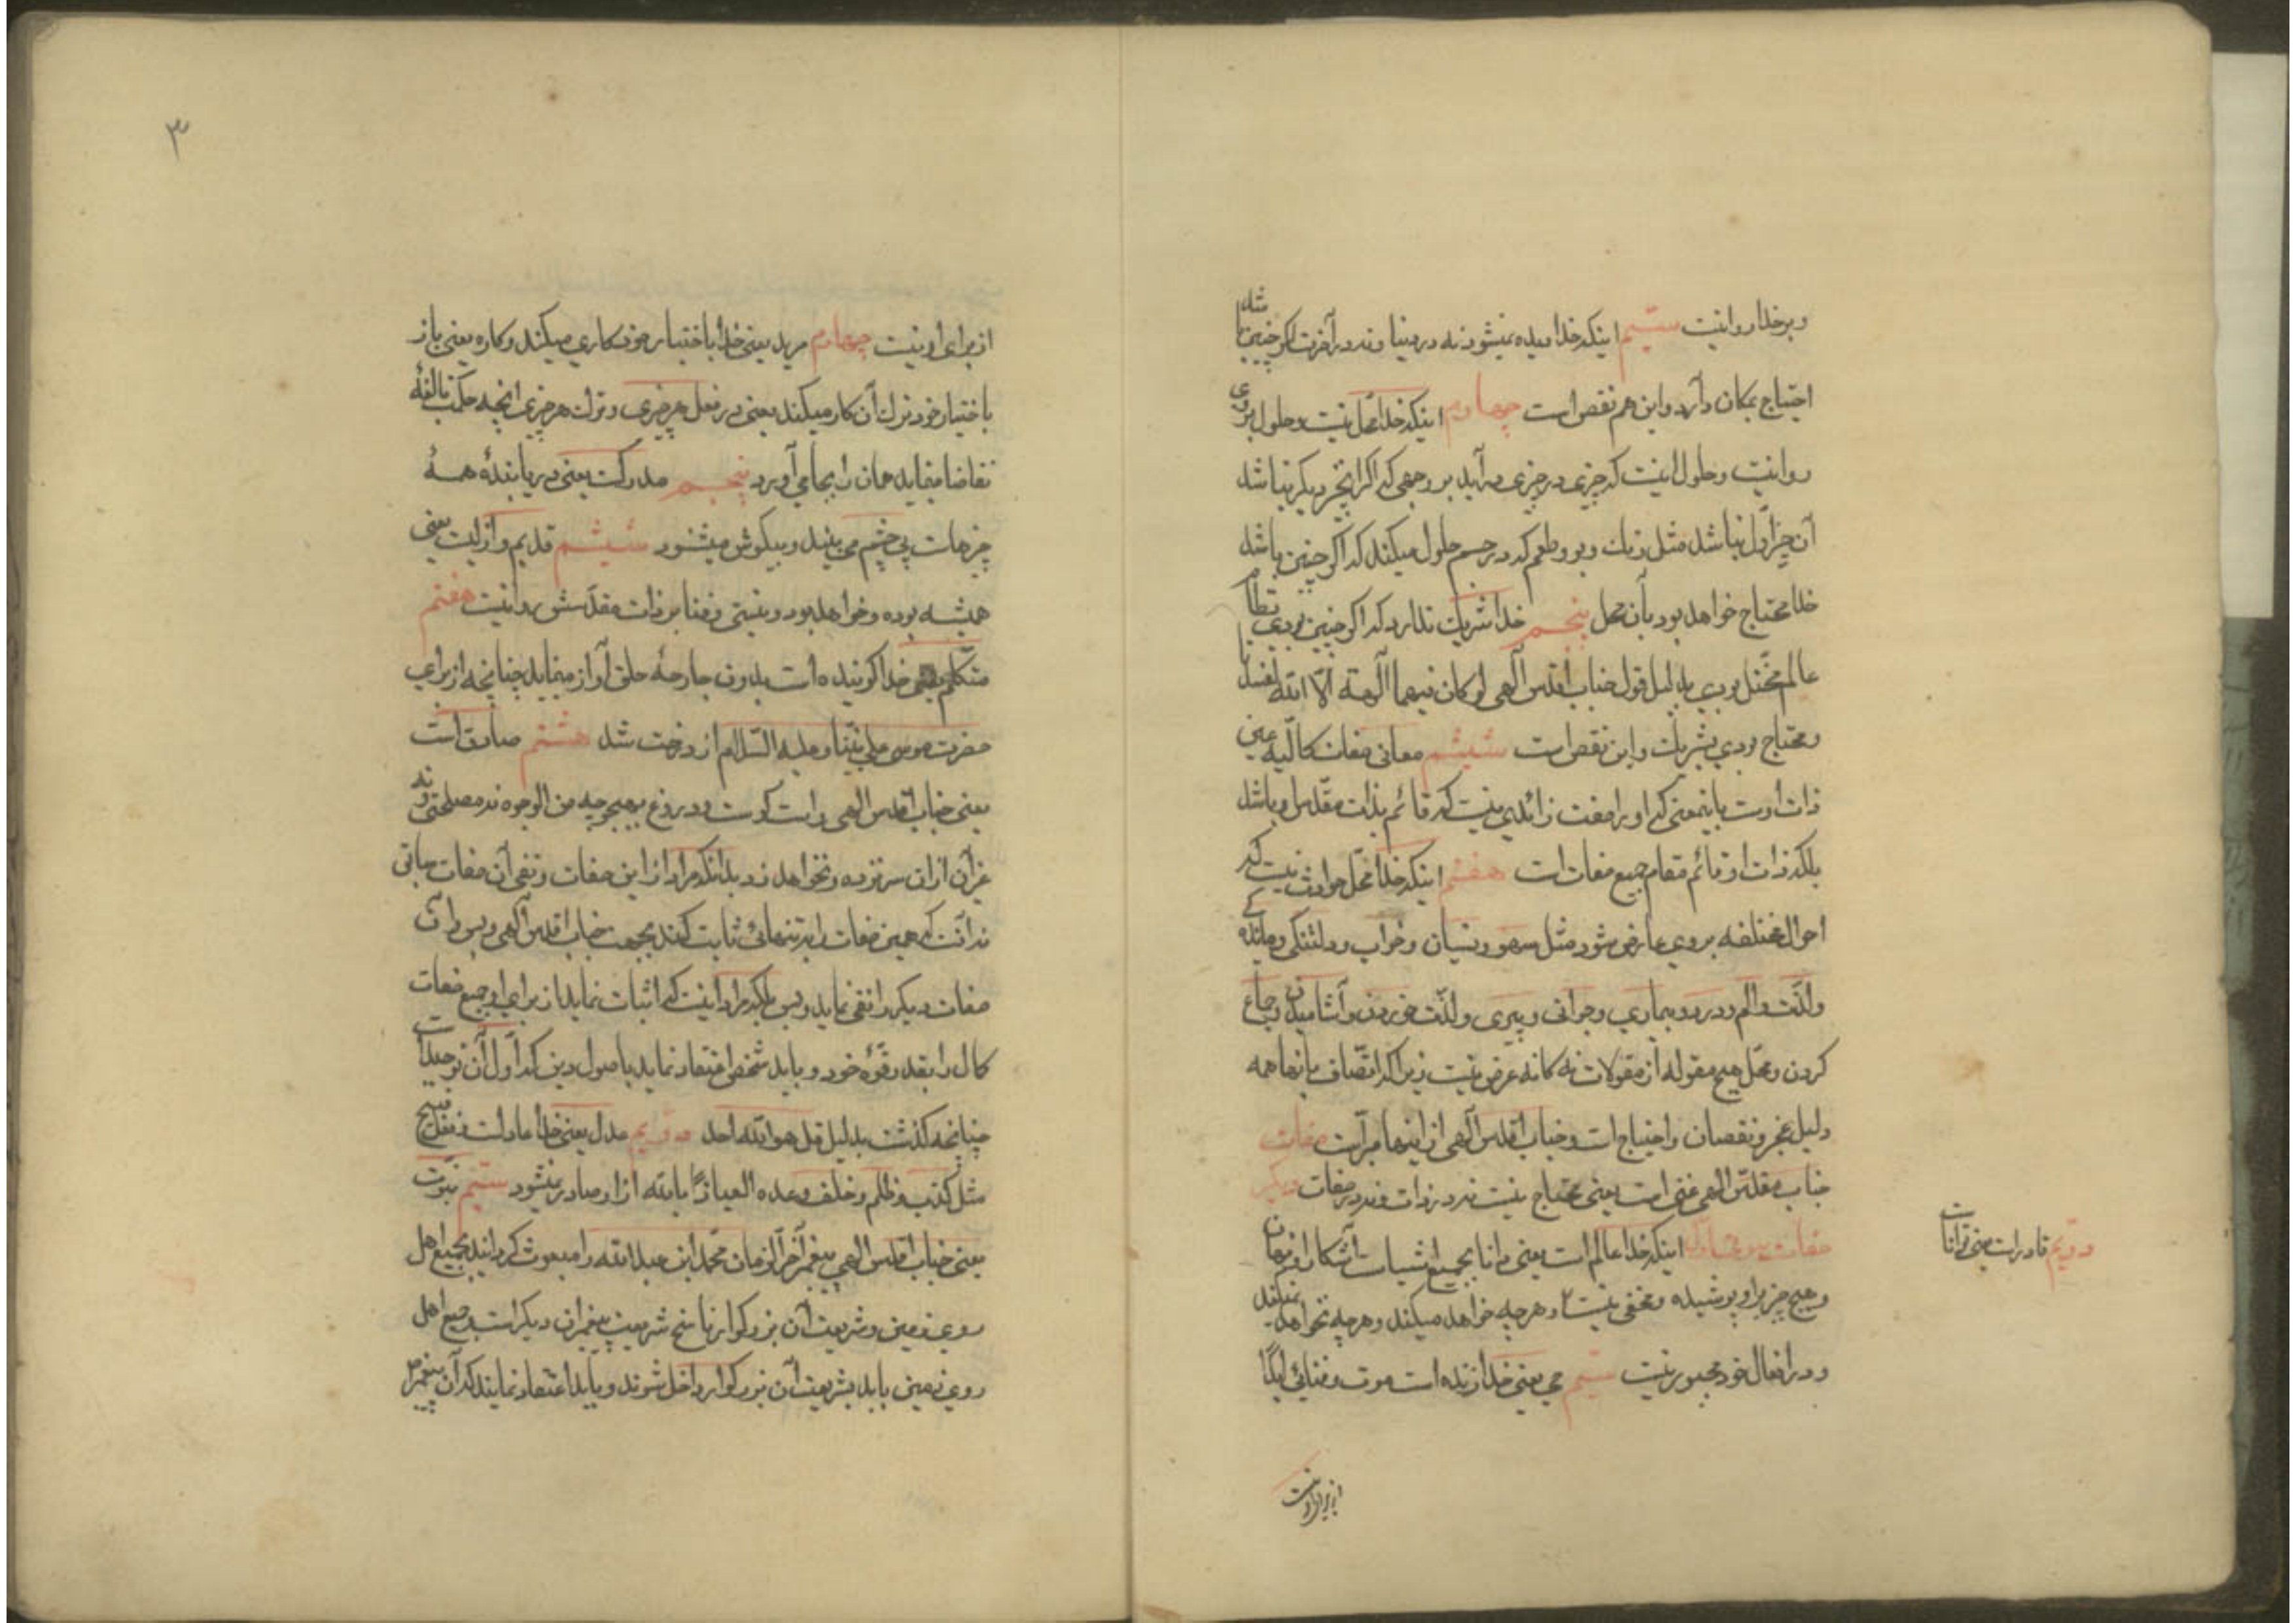 و بر خدا روا نیست سیّم اینکه خدا دیده نمیشود نه در دنیا و نه در آخرت اگر چنین باشد
احتیاج بمکان دارد و این هم نقص است چهارم اینکه خدا محل نیست و حلول بر وی
روا نیست و حلول اینست که چیزی در چیزی در آید بر وجهی که اگر این چیز دیگر نباشد
آن چیز اوّل نباشد مثل رنک و بو و طعم که در جسم حلول میکند که اگر چنین باشد
خدا محتاج خواهد بود بآن محل پنجم خدا شریک ندارد که اگر چنین بودی نظام
عالم مختل بودی بدلیل قول جناب اقدس آلهی لو کان فیهما آلهة الّا الله لفسدتا
و محتاج بودی بشریک و این نقص است ششم معانی صفات کمالیّه عین
ذات اوست باینمعنی که او را صفت زائدی نیست که قائم بذات مقدّس او باشد
بلکه ذات او قائم مقام جمیع صفات است هفتم اینکه خدا محلّ حوادث نیست که
احوال مختلفه بر وی عارض شود مثل سهو و نسیان و خواب و دلتنکی و ماندکی
و لذّت و الم و درد و بیماری و جوانی و پیری و لذّت خوردن و آشامیدن و جماع
کردن و محلّ هیچ مقوله از مقولات نه کانه عرض نیست زیرا که اتّصاف بانها همه
دلیل عجز و نقصان و احتیاج است و جناب اقدس آلهی از اینها مبرّاست صفات دیگر
جناب مقدّس الهی غنی است یعنی محتاج نیست نه در ذات و نه در صفات
صفات ثبوتیه اوّل اینکه خدا عالم است یعنی دانا بجمیع اشیاست آشکار و پنهان
و هیچ چیز بر او پوشیده و مخفی نیست و هر چه خواهد میکند و هر چه نخواهد نمیکند
دویّم قادر است یعنی تواناست
و در افعال خود مجبور نیست سیّم حی یعنی خدا زنده است موت و فنائی ابدًا
از برای او نیست
۳
از برای او نیست چهارم مرید یعنی خدا باختیار خود کاری میکند و کاره یعنی باز
باختیار خود ترک آن کار میکند یعنی در فعل هر چیزی و ترک هر چیزی انچه حکمت بالغهٔ
تقاضا مینماید همان را بجا می آورد پنجم مدرکست یعنی دریابندهٔ همهٔ
چیزهاست بی چشم می بیند و بیکوش میشنود ششم قدیم و ازلیست یعنی
همیشه بوده و خواهد بود و نیستی و فنا بر ذات مقدّسش روا نیست هفتم
متکلّم یعنی خدا کوینده است بدون جارحهٔ خلق آواز مینماید چنانچه از برای
حضرت موسی علی نبیّنا و علیه السّلام از درخت شد هشتم صادق است
یعنی جناب اقدس الهی راست کوست و دروغ بهیچوجه من الوجوه نه مصلحتی و نه
غیر آن از ان سر نزده و نخواهد زد بدانکه مراد از این صفات و نفی آن صفات سابق
نه آنست که همین صفات را بتنهائی ثابت کنند بجهت جناب اقدس آلهی و بس و آن
صفات دیکر را نفی نماید و بس بلکه مراد اینست که اثبات نماید از برای او جمیع صفات
کمال را بقدر قوّهٔ خود و باید شخص اعتقاد نماید باصول دین که اوّل آن توحید است
چنانچه کذشت بدلیل قل هو الله احد دویّم عدل یعنی خدا عادلست و فعل قبیح
مثل کذب و ظلم و خلف وعده العیاذًا بالله از او صادر نمیشود سیّم نبوّت
یعنی جناب اقدس الهی پیغمبر آخر الزّمان محمّد ابن عبد الله را مبعوث کردانید بجمیع اهل
روی زمین و شریعت آن بزرکوار ناسخ شریعت پیغمبران دیکر است و جمیع اهل
روی زمین باید بشریعت آن بزرکوار داخل شوند و باید اعتقاد نمایند که آن پیغمبر